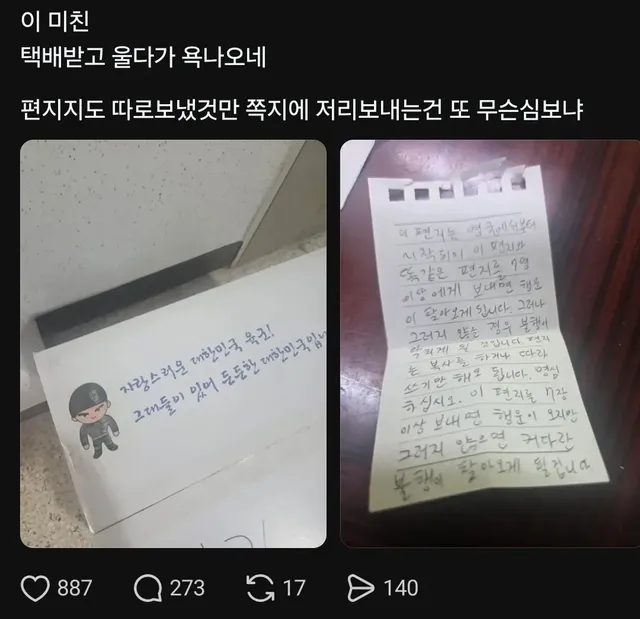 이 미친
택배받고 울다가 욕나오네
편지지도 따로보냈것만 쪽지에 저리보내는건 또 무슨심보냐
자랑스러운 대한민국 육군!
그대들이 있어 든든한 대한민국입니
이 편지는 영국에서부터
시작되어 이 편지와
똑같은 편지를 7명
이상에게 보내면 행운
이 찾아오게 됩니다. 그러나
그러지 않을 경우 불행이
오게 될 것입니다. 편지
는 복사를 하거나 따라
쓰기만 해도 됩니다. 명심
하십시오. 이 편지를 7장
이상 보내면 행운이 오지만
그러지 않으면 커다란
불행이 찾아오게 될겁니다
887
273
17
140